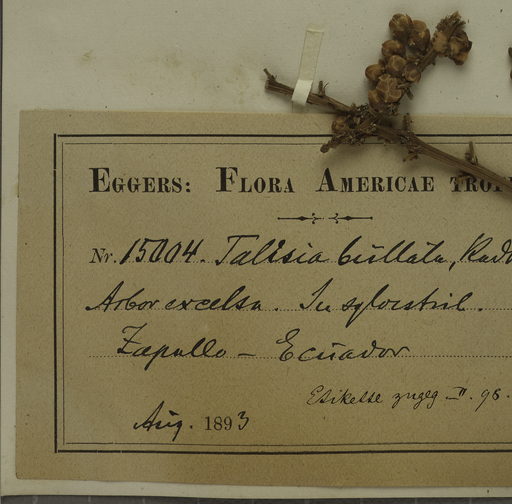 EGGERS: FLORA AMERICAE TROP
Nr. 15004. Talisia bullata, Radl
Arbor excelsa. In sylvestrib.
Zapallo - Ecuador
Etikette zugeg. II. 96.
Aug. 1893